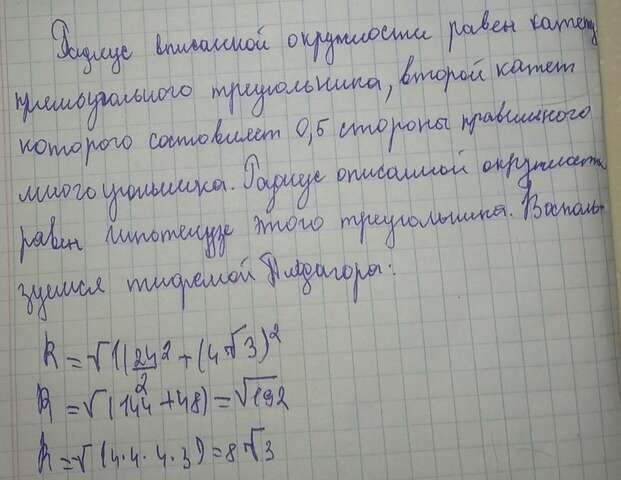 Радиус вписанной окружности равен катету
прямоугольного треугольника, второй катет
которого составляет 0,5 стороны правильного
многоугольника. Радиус описанной окружности
равен гипотенузе этого треугольника. Восполь-
зуемся теоремой Пифагора:
R = √((24/2)² + (4√3)²
R = √(144 + 48) = √192
R = √(4·4·4·3) = 8√3